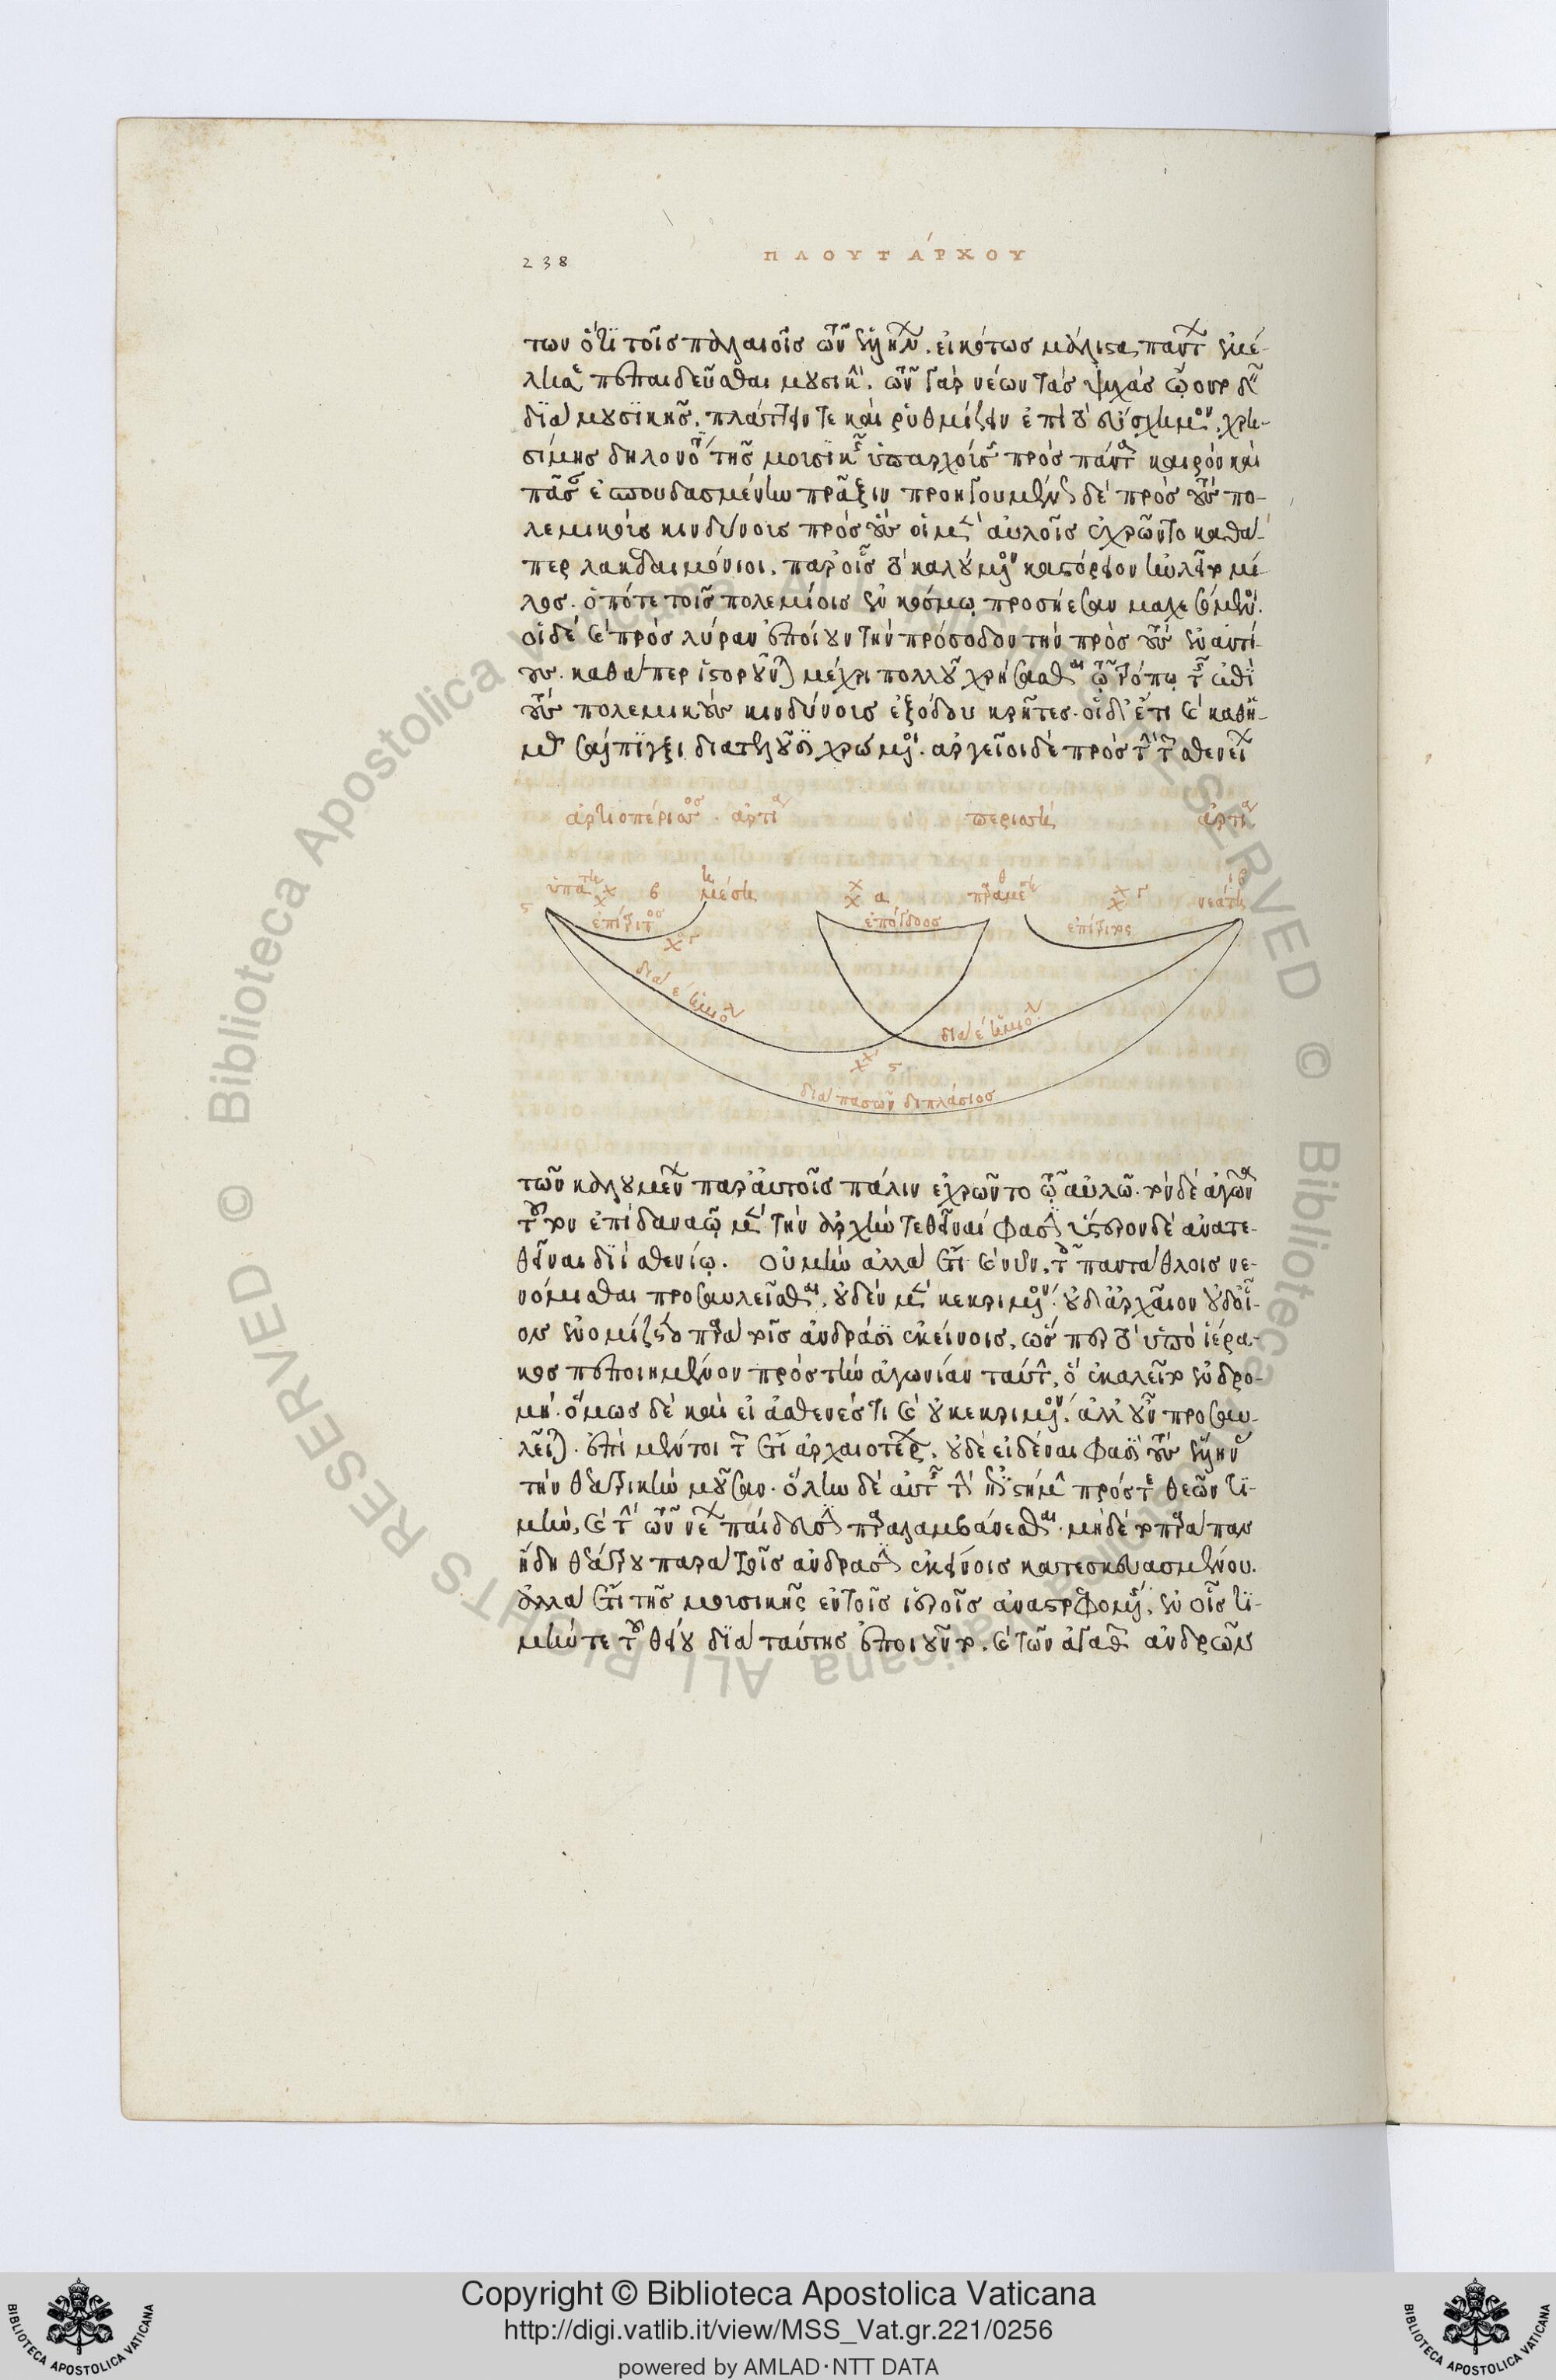 238 ΠΛΟΥΤΆΡΧΟΥ
των ὅτι τοῖς παλαιοῖς τῶν ἑλλήνων. εἰκότως μάλιστα πάντων ἐμέ-
λησε πεπαιδεῦσθαι μουσικήν. τῶν γὰρ νέων τὰς ψυχὰς ᾤοντο δεῖν
διὰ μουσικῆς. πλάττειν τε καὶ ῥυθμίζειν ἐπὶ τὸ εὔσχημον. χρη-
σίμης δηλονότι τῆς μουσικῆς ὑπαρχούσης πρὸς πάντα καιρὸν καὶ
πᾶσαν ἐσπουδασμένην πρᾶξιν προηγουμένως δὲ πρὸς τοὺς πο-
λεμικοὺς κινδύνοις πρὸς οὓς οἱ μὲν αὐλοῖς ἐχρῶντο καθά-
περ λακεδαιμόνιοι. παρ οἷς τὸ καλούμενον καστόρειον ηὐλεῖτο μέ-
λος. ὁπότε τοῖς πολεμίοις ἐν κόσμῳ προσήεσαν μαχεσόμενοι.
οἱ δὲ καὶ πρὸς λύραν ἐποίουν τὴν πρόσοδον τὴν πρὸς τοὺς ἐναντί-
ους. καθάπερ ἱστοροῦνται μέχρι πολλοῦ χρήσασθαι τῷ τρόπῳ τῆς ἐπὶ
τοὺς πολεμικοὺς κινδύνοις ἐξόδου κρῆτες. οἱ δ' ἔτι καὶ καθ' ἡ-
μᾶς σάλπιγξι διατελοῦσι χρώμενοι. ἀργεῖοι δὲ πρὸς τὴν τῶν σθενείων
ἀρτιοπέριττος . ἄρτιαν περισσὴ ἄρτιαν
ὑπάτη 6 η μέση α θ παραμέση γ ιβ νεάτη
ς ἐπίτριτος ἐπόγδοος ἐπίτριτος
διὰ ε ἡμιόλ διὰ ε ἡμιόλ
ς
διὰ πασῶν διπλάσιος
τῶν καλουμένων παρ' αὐτοῖς πάλιν ἐχρῶντο τῷ αὐλῷ. τὸν δὲ ἀγῶνα
τοῦτον ἐπὶ δαναῷ μὲν τὴν ἀρχὴν τεθῆναί φασιν ὕστερον δὲ ἀνατε-
θῆναι διὶ σθενίῳ. οὐ μὴν ἀλλὰ ἔτι καὶ νῦν. τοῖς πεντάθλοις νε-
νόμισθαι προσαυλεῖσθαι. οὐδὲν μὲν κεκριμένον. οὐδ' ἀρχαῖον οὐδ' οἷ-
ον ἐνομίζετο παρὰ τοῖς ἀνδράσι ἐκείνοις, ὥσπερ τὸ ὑπὸ ἱέρα-
κος πεποιημένον πρὸς τὴν ἀγωνίαν ταύτην, ὃ ἐκαλεῖτο ἐνδρο-
μή. ὅμως δὲ καὶ εἰ ἀσθενές τι καὶ οὐ κεκριμένον. ἀλλ' οὖν προσαυ-
λεῖται. ἐπὶ μέντοι τῶν ἔτι ἀρχαιοτέρων. οὐδὲ εἰδέναι φασὶ τοὺς ἕλληνας
τὴν θεατρικὴν μοῦσαν. ὅλην δὲ αὐτοῖς τὴν ἐπιστήμην πρός τε θεῶν τι-
μὴν, καὶ τὴν τῶν νέων παίδευσιν παραλαμβάνεσθαι. μηδὲ τὸ παράπαν
ἤδη θεάτρου παρὰ τοῖς ἀνδράσιν ἐκείνοις κατεσκευασμένου.
ἀλλὰ ἔτι τῆς μουσικῆς ἐν τοῖς ἱεροῖς ἀναστρεφομένης, ἐν οἷς τι-
μήν τε τοῦ θείου διὰ ταύτης ἐποιοῦντο. καὶ τῶν ἀγαθῶν ἀνδρῶν
Copyright © Biblioteca Apostolica Vaticana
http://digi.vatlib.it/view/MSS_Vat.gr.221/0256
powered by AMLAD·NTT DATA
BIBLIOTECA APOSTOLICA VATICANA
BIBLIOTECA APOSTOLICA VATICANA
© Biblioteca Apostolica Vaticana ALL RIGHTS RESERVED
© Biblioteca Apostolica Vaticana ALL RIGHTS RESERVED